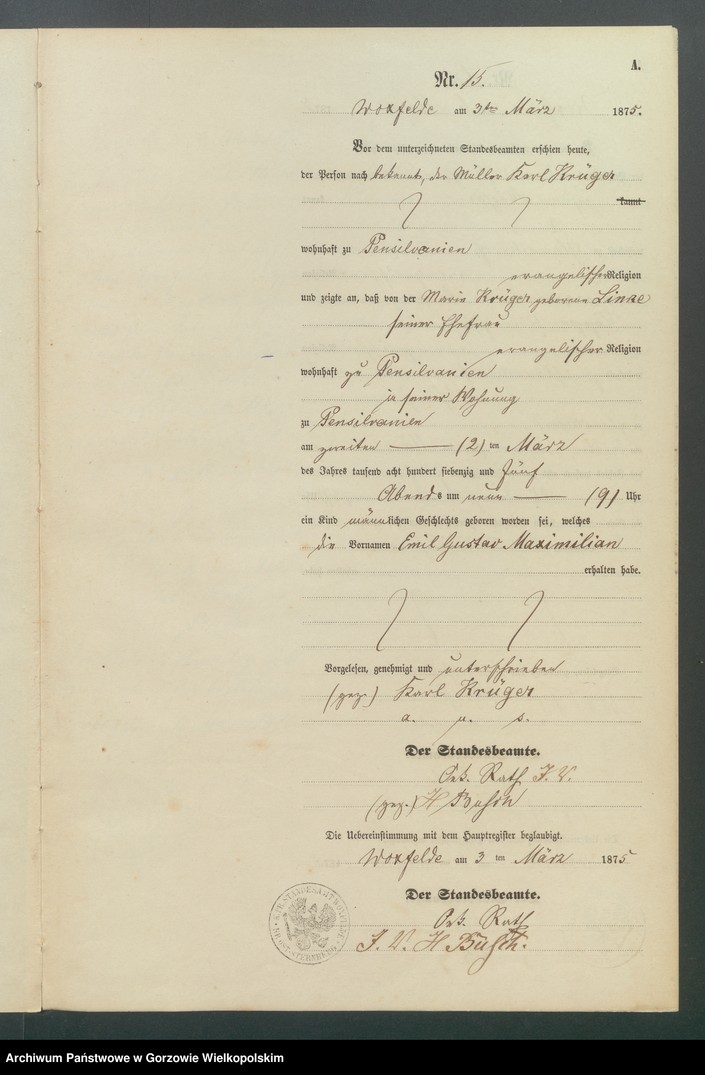 A.
Nr. 15.
Woxfelde am 3ten März 1875.
Vor dem unterzeichneten Standesbeamten erschien heute,
der Person nach bekannt, der Müller Karl Krüger
kannt
wohnhaft zu Pensilvanien
evangelischer Religion
und zeigte an, daß von der Marie Krüger geborene Linke
seiner Ehefrau
evangelischer Religion
wohnhaft zu Pensilvanien
in seiner Wohnung
zu Pensilvanien
am zweiten (2) ten März
des Jahres tausend acht hundert siebenzig und fünf
Abends um neun (9) Uhr
ein Kind männlichen Geschlechts geboren worden sei, welches
die Vornamen Emil Gustav Maximilian
erhalten habe.
Vorgelesen, genehmigt und unterschrieben
(gez.) Karl Krüger
a. u. s.
Der Standesbeamte.
Rath I. V.
(gez.) H Busch
Die Uebereinstimmung mit dem Hauptregister beglaubigt.
Woxfelde am 3 ten März 1875
Der Standesbeamte.
Rath
I. V. H Busch.
STANDESAMT WOXFELDE
OST-STERNBERG
Archiwum Państwowe w Gorzowie Wielkopolskim